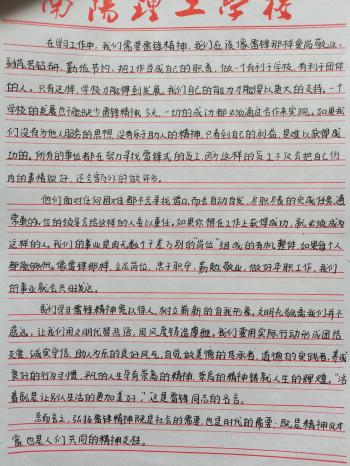 南阳理工学校
在学习工作中，我们需要雷锋精神，我们应该像雷锋那样爱岗敬业，
刻苦钻研，勤俭节约，把工作当成自己的职责，做一个有利于学校，有利于团体
的人，只有这样，学校才能得到发展，我们自己的能力才能得以更大的支持。一个
学校的发展也不能缺少雷锋精神，今天，一切的成功都必须通过合作来实现，如果我
们没有为他人服务的思想，没有乐于助人的精神，只看到自己的利益，是难以获得成
功的。所有的单位都在努力寻找雷锋式的员工，因为这样的员工不仅会把自己份
内的事情做好，还会额外的做许多。
他们面对任何困难都不会寻找借口，而会自动自发，尽职尽责的完成任务，通
常单的位的领导会给这样的人委以重任。如果你想在工作上获得成功，就必须成为
这样的人，我们的事业是由无数个千差万别的"岗位"组成的有机整体，如果每个人
都能够像雷锋那样，立足岗位，忠于职守，勤勉敬业，做好本职工作，我们
的事业就会兴旺发达。
我们学习雷锋精神宽以待人，树立崭新的自我形象，文明礼貌离我们并不
遥远，让我们用文明代替恶语，用风度铸造厚雅。我们要用实际行动形成团结
友爱，诚实守信，助人为乐的良好风气，自觉做美德的传承者，道德的实践者，养成
良好的行为习惯，平凡的人生孕育崇高的精神，崇高的精神铸就人生的辉煌。"活
着就是让别人生活的更加美好，"这是雷锋同志的名言。
总而言之，弘扬雷锋精神既是社会的需要，也是时代的需要；既是精神文明
富，也是人们共同的精神支柱。